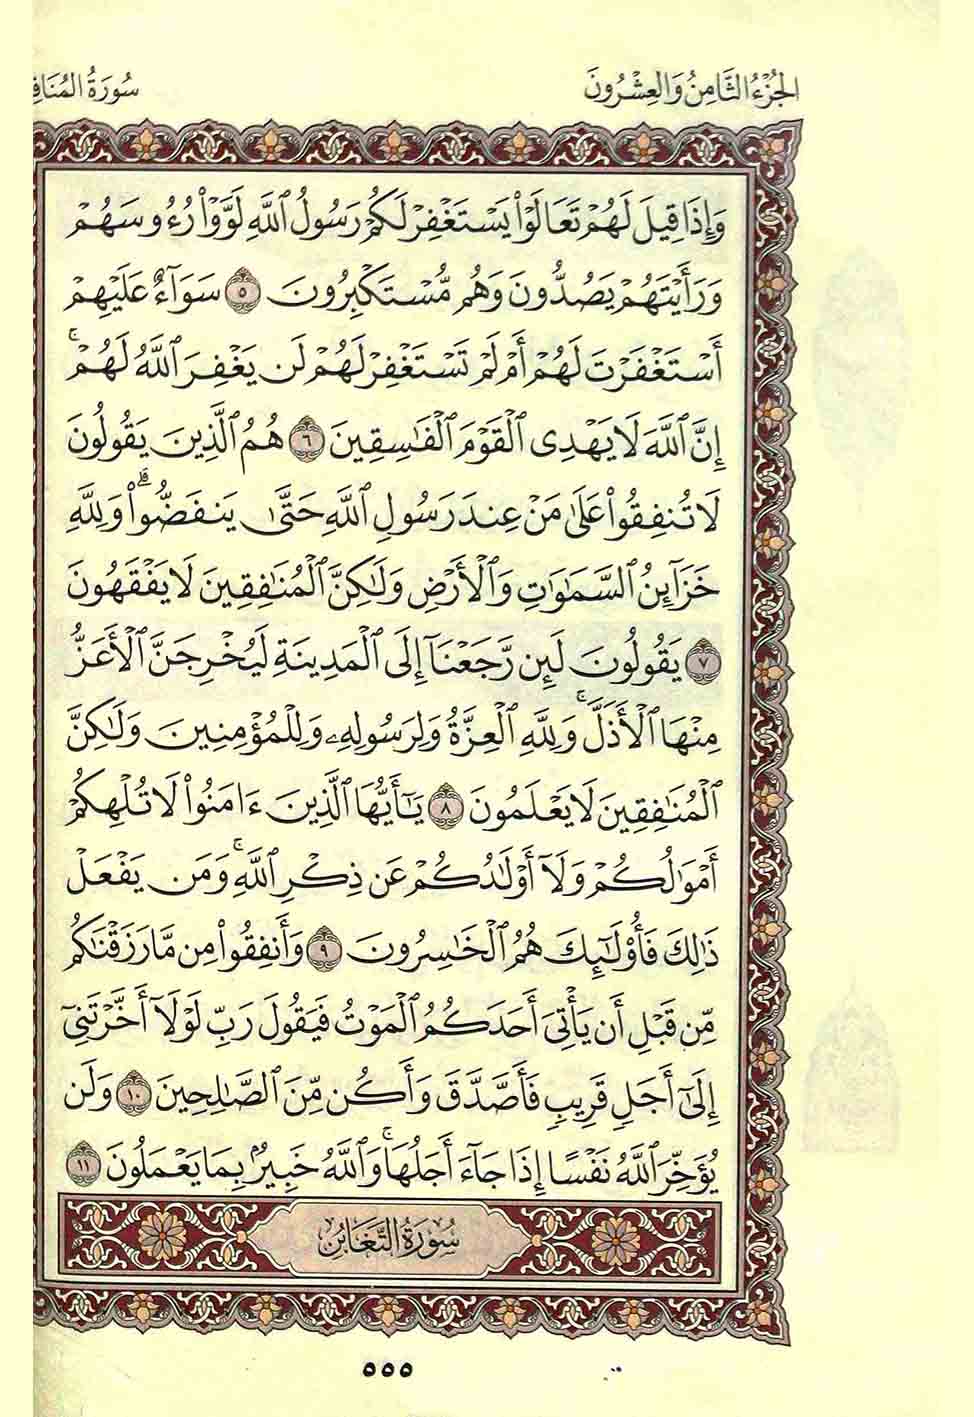 الجُزْءُ الثَّامِنُ وَالعِشْرُونَ
سُورَةُ المُنَافِ
وَإِذَا قِيلَ لَهُمْ تَعَالَوْا۟ يَسْتَغْفِرْ لَكُمْ رَسُولُ ٱللَّهِ لَوَّوْا۟ رُءُوسَهُمْ
وَرَأَيْتَهُمْ يَصُدُّونَ وَهُم مُّسْتَكْبِرُونَ ٥ سَوَآءٌ عَلَيْهِمْ
أَسْتَغْفَرْتَ لَهُمْ أَمْ لَمْ تَسْتَغْفِرْ لَهُمْ لَن يَغْفِرَ ٱللَّهُ لَهُمْ ۚ
إِنَّ ٱللَّهَ لَا يَهْدِى ٱلْقَوْمَ ٱلْفَٰسِقِينَ ٦ هُمُ ٱلَّذِينَ يَقُولُونَ
لَا تُنفِقُوا۟ عَلَىٰ مَنْ عِندَ رَسُولِ ٱللَّهِ حَتَّىٰ يَنفَضُّوا۟ ۗ وَلِلَّهِ
خَزَآئِنُ ٱلسَّمَٰوَٰتِ وَٱلْأَرْضِ وَلَٰكِنَّ ٱلْمُنَٰفِقِينَ لَا يَفْقَهُونَ
٧ يَقُولُونَ لَئِن رَّجَعْنَآ إِلَى ٱلْمَدِينَةِ لَيُخْرِجَنَّ ٱلْأَعَزُّ
مِنْهَا ٱلْأَذَلَّ ۚ وَلِلَّهِ ٱلْعِزَّةُ وَلِرَسُولِهِۦ وَلِلْمُؤْمِنِينَ وَلَٰكِنَّ
ٱلْمُنَٰفِقِينَ لَا يَعْلَمُونَ ٨ يَٰٓأَيُّهَا ٱلَّذِينَ ءَامَنُوا۟ لَا تُلْهِكُمْ
أَمْوَٰلُكُمْ وَلَآ أَوْلَٰدُكُمْ عَن ذِكْرِ ٱللَّهِ ۚ وَمَن يَفْعَلْ
ذَٰلِكَ فَأُو۟لَٰٓئِكَ هُمُ ٱلْخَٰسِرُونَ ٩ وَأَنفِقُوا۟ مِن مَّا رَزَقْنَٰكُم
مِّن قَبْلِ أَن يَأْتِىَ أَحَدَكُمُ ٱلْمَوْتُ فَيَقُولَ رَبِّ لَوْلَآ أَخَّرْتَنِىٓ
إِلَىٰٓ أَجَلٍ قَرِيبٍ فَأَصَّدَّقَ وَأَكُن مِّنَ ٱلصَّٰلِحِينَ ١٠ وَلَن
يُؤَخِّرَ ٱللَّهُ نَفْسًا إِذَا جَآءَ أَجَلُهَا ۚ وَٱللَّهُ خَبِيرٌۢ بِمَا تَعْمَلُونَ ١١
سُورَةُ التَّغَابُنِ
٥٥٥